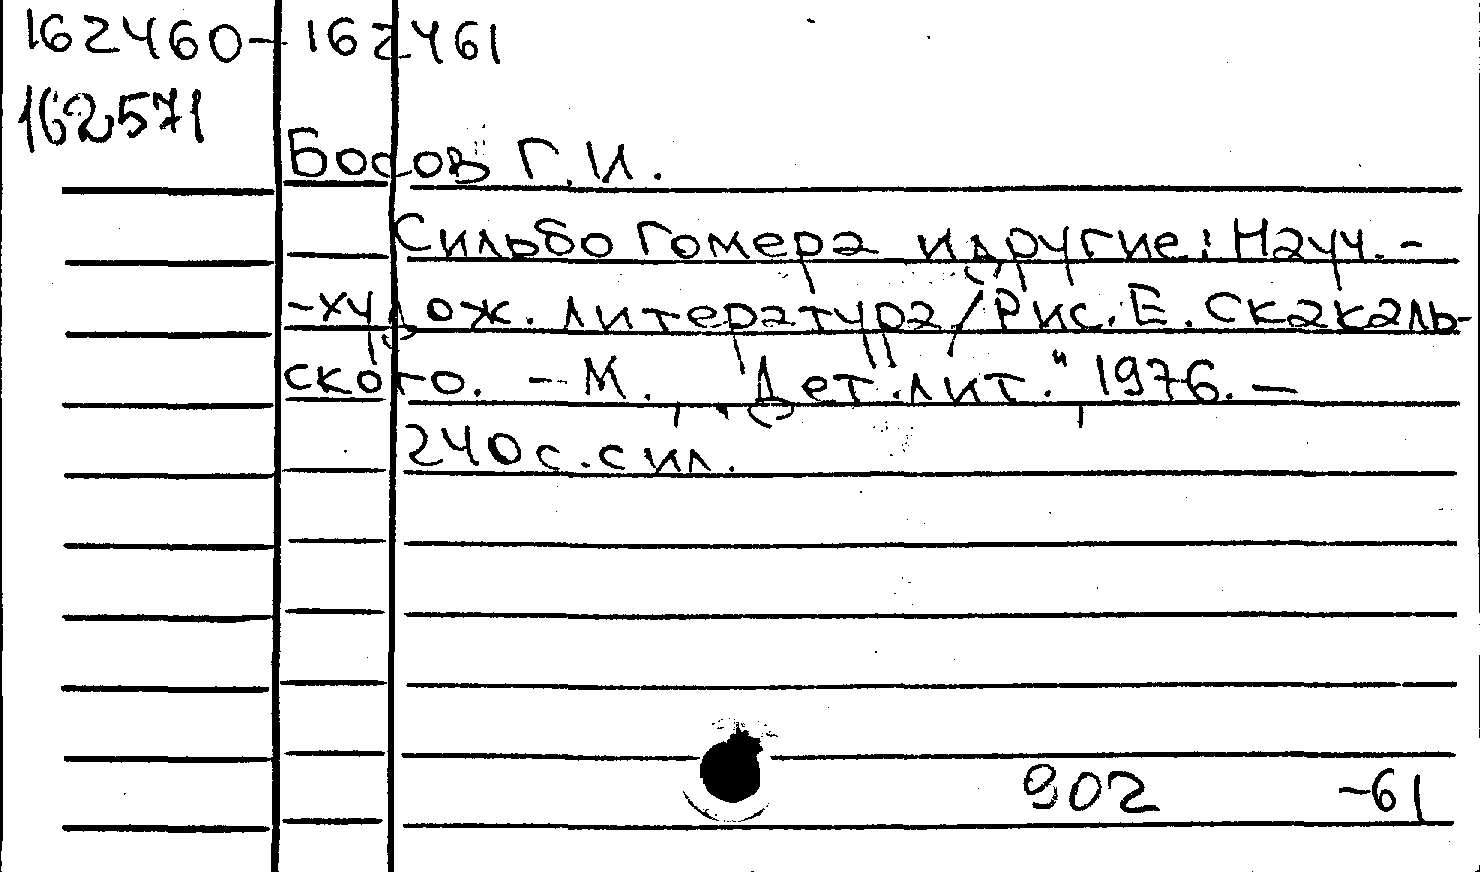 162460-162461
162571
Босов Г.И.
Сильбо Гомера и другие: Науч.-
-худож. литература/Рис. Е. Скакаль-
ского. - М., "Дет.лит.", 1976. -
240с.с ил.
902 -61